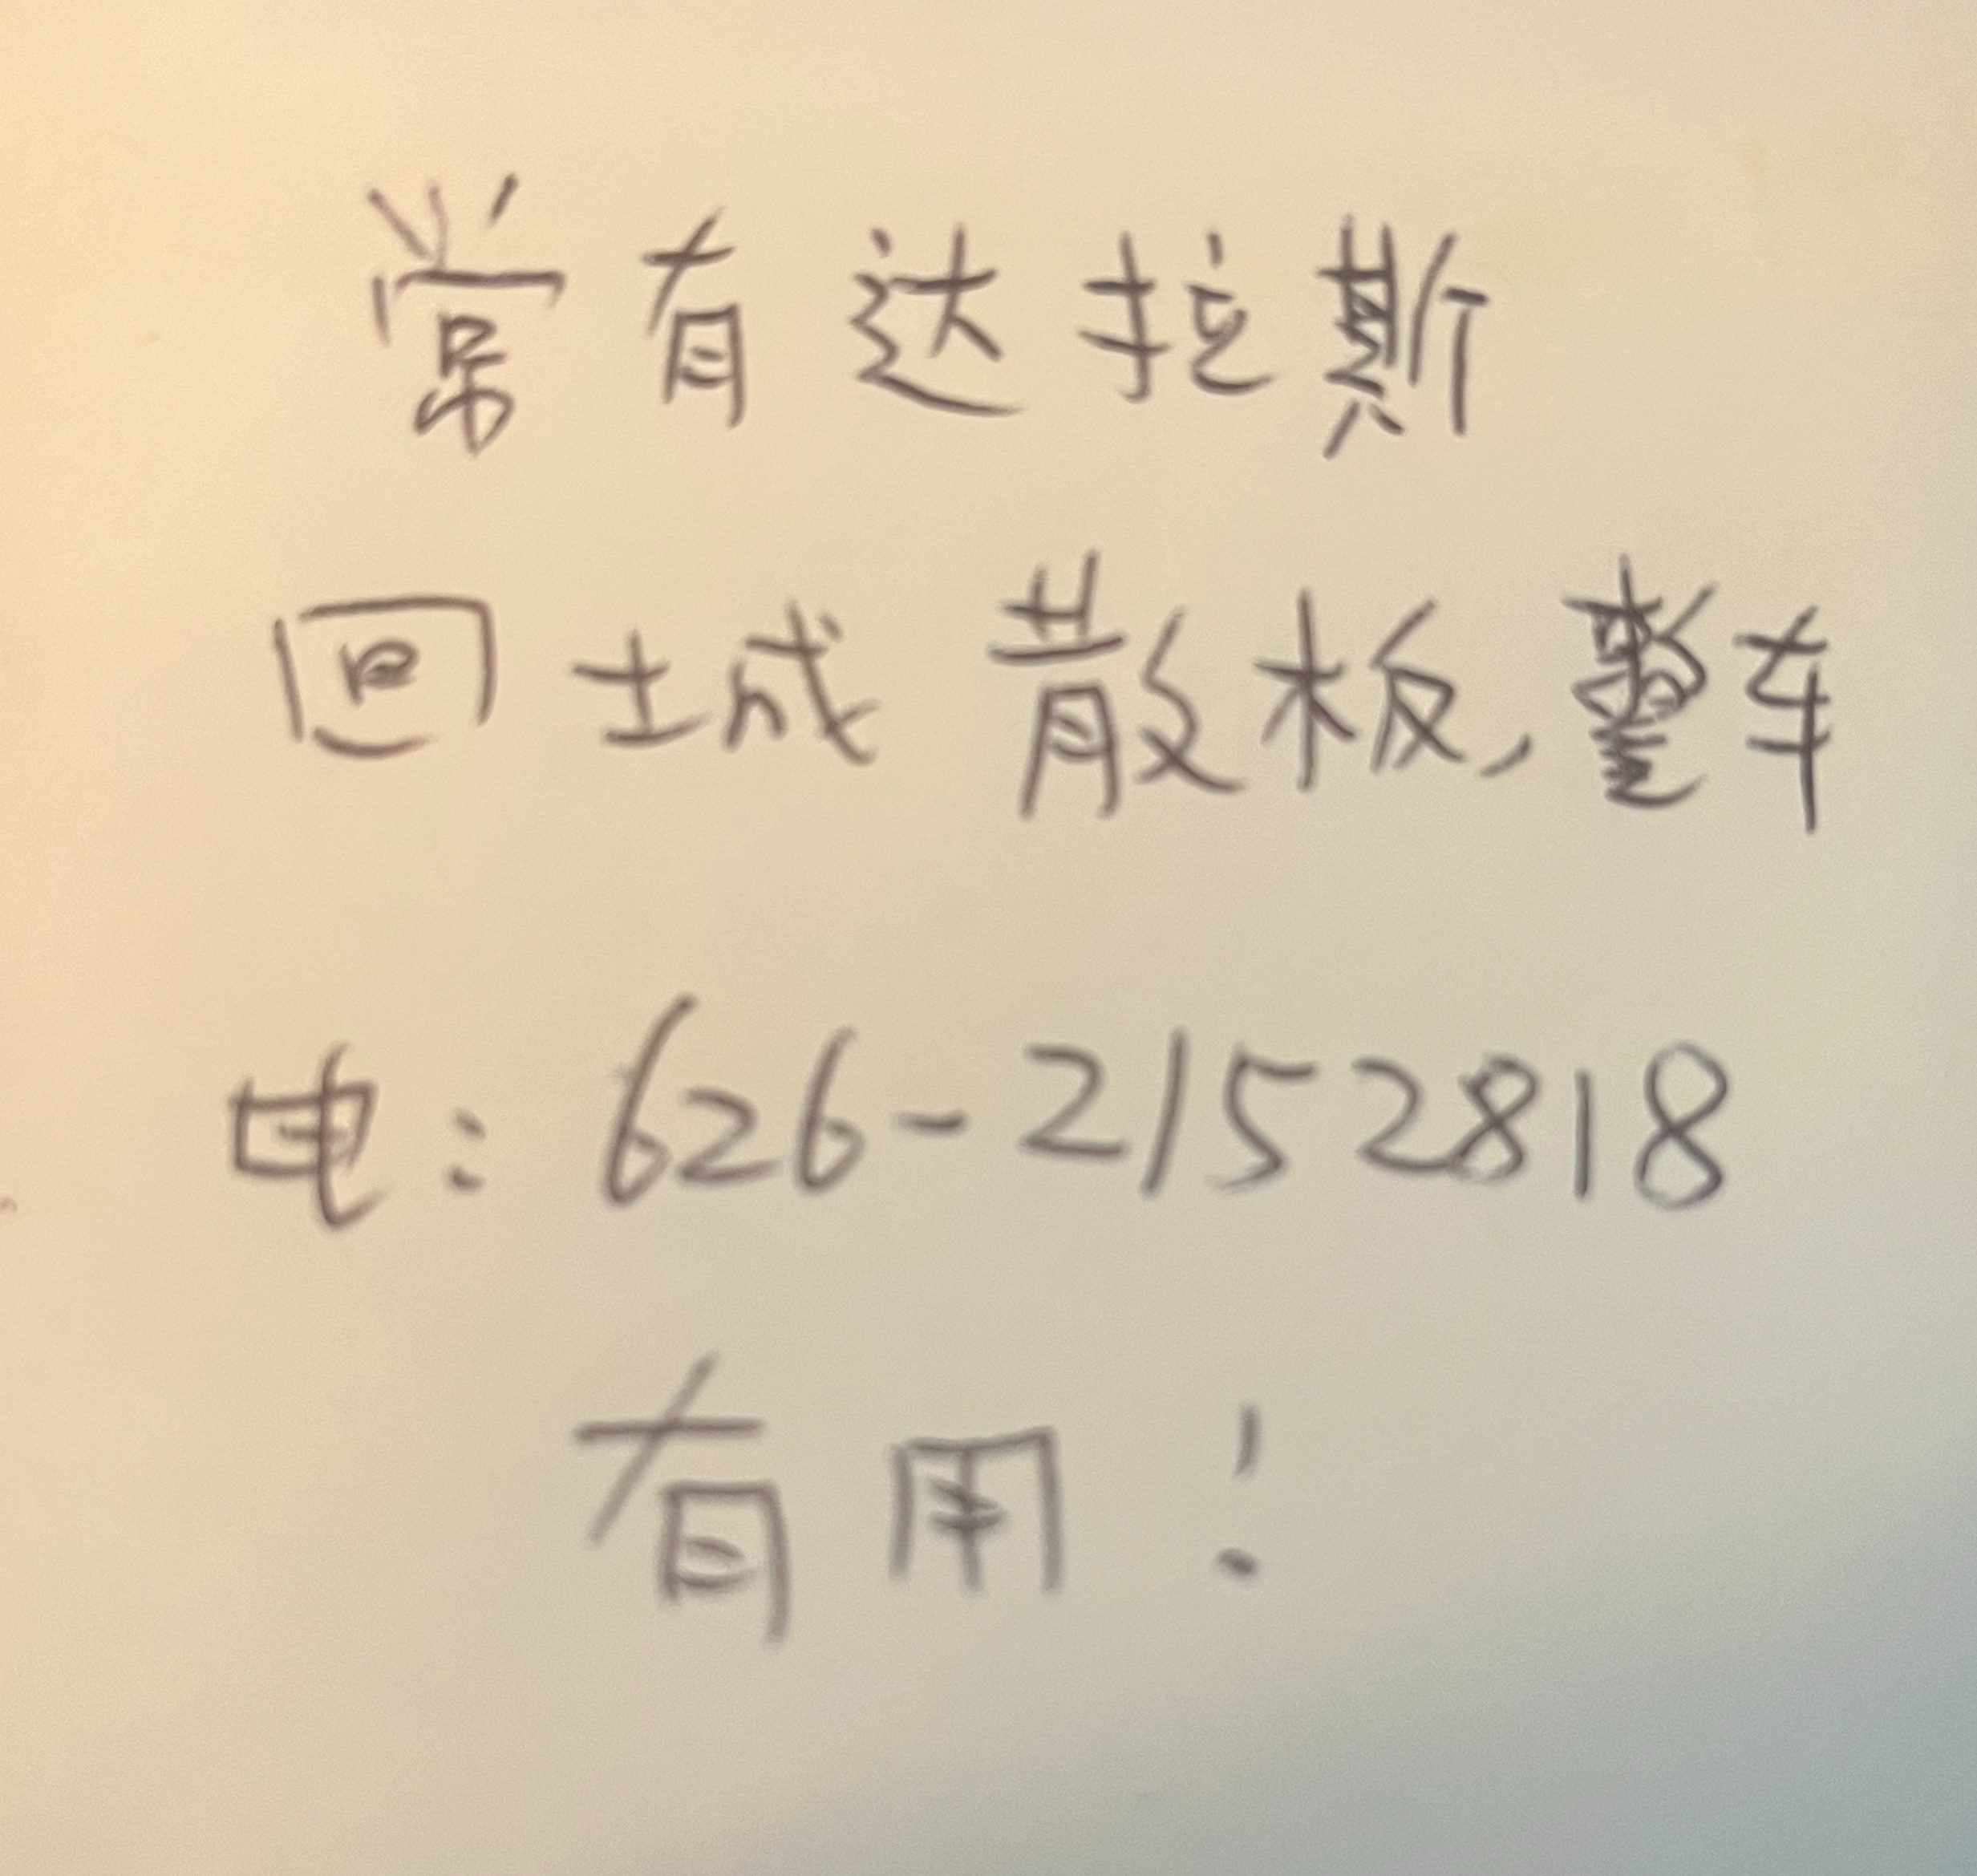 常有达拉斯
回士成 散板,整车
电:626-2152818
有用!